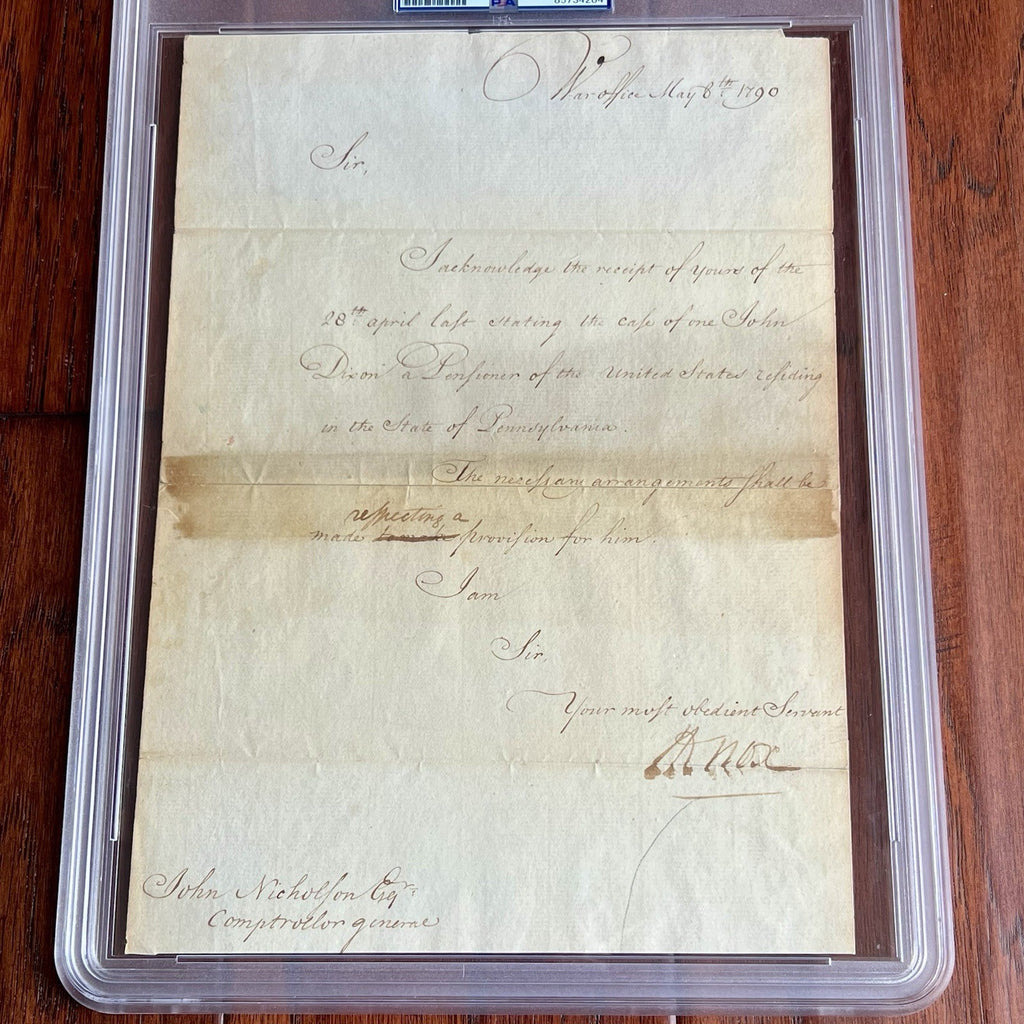 PSA
War office May 8th 1790
Sir,
I acknowledge the receipt of yours of the
28th april last stating the case of one John
Dixon a Pensioner of the United States residing
in the State of Pennsylvania.
The necessary arrangements shall be
respecting a
made to make provision for him.
I am
Sir,
Your most obedient Servant
HKnox
John Nicholson Esqr
Comptroller general